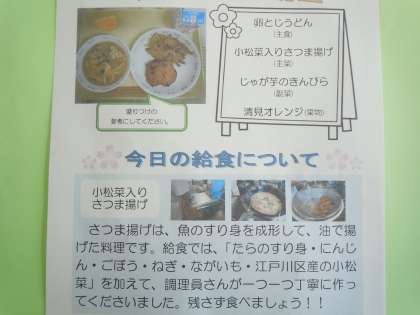 卵とじうどん
(主食)
小松菜入りさつま揚げ
(主菜)
じゃが芋のきんぴら
(副菜)
清見オレンジ(果物)
盛りつけの
参考にしてください。
今日の給食について
小松菜入り
さつま揚げ
さつま揚げは、魚のすり身を成形して、油で揚
げた料理です。給食では、「たらのすり身・にんじ
ん・ごぼう・ねぎ・ながいも・江戸川区産の小松
菜」を加えて、調理員さんが一つ一つ丁寧に作っ
てくださいました。残さず食べましょう！！